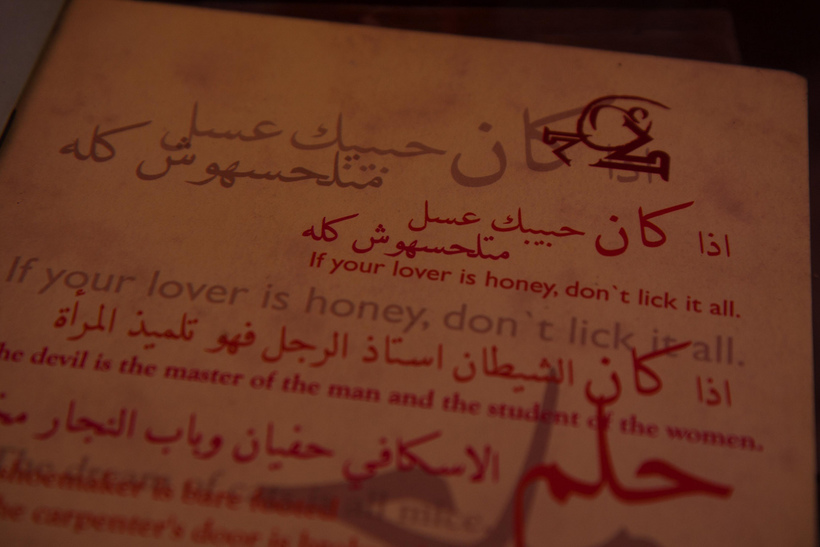 اذا كان حبيبك عسل
متلحسهوش كله
اذا كان حبيبك عسل
متلحسهوش كله
If your lover is honey, don`t lick it all.
If your lover is honey, don`t lick it all.
اذا كان الشيطان استاذ الرجل فهو تلميذ المرأة
he devil is the master of the man and the student of the women.
الاسكافي حفيان وباب النجار
حلم
The dream of all mice.
shoemaker is bare footed
he carpenter's door is